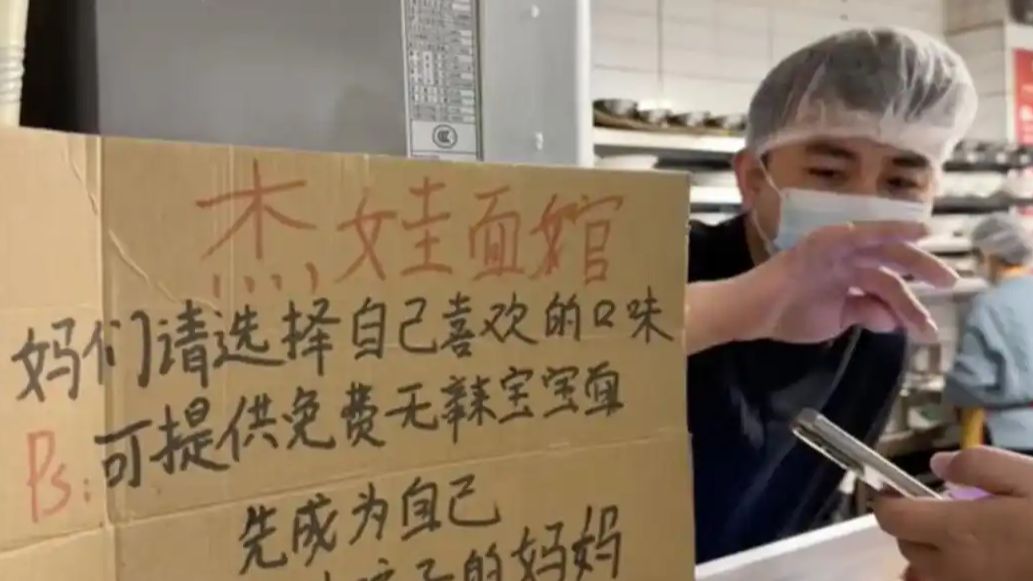 杰娃面馆
妈们请选择自己喜欢的口味
Ps:可提供免费无辣宝宝面
先成为自己
孩子的妈妈